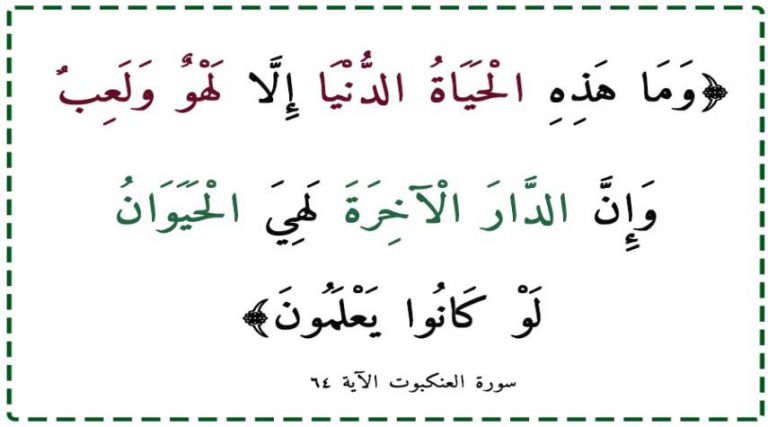 ﴿وَمَا هَذِهِ الْحَيَاةُ الدُّنْيَا إِلَّا لَهْوٌ وَلَعِبٌ
وَإِنَّ الدَّارَ الْآخِرَةَ لَهِيَ الْحَيَوَانُ
لَوْ كَانُوا يَعْلَمُونَ﴾
سورة العنكبوت الآية ٦٤